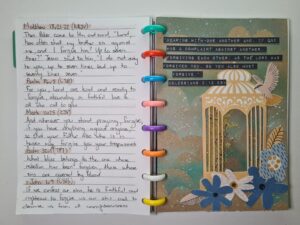 Matthew 18:21-22 (NKJV)
Then Peter came to Him and said, "Lord,
how often shall my brother sin against
me, and I forgive him? Up to seven
times?" Jesus said to him, "I do not say
to you, up to seven times, but up to
seventy times seven
Psalm 86:5
For you, Lord, are good, and ready to
forgive, abounding in faithful love to
all who call to you
Mark 11:25
And whenever you stand praying, forgive,
if you have anything against anyone,
so that your Father also who is in
heaven may forgive you your trespasses
Psalm 32:1
What bliss belongs to the one whose
rebellion has been forgiven, those whose
sins are covered by blood
1 John 1:9
If we confess our sins, he is faithful and
righteous to forgive us our sins and to
cleanse us from all unrighteousness
BEARING WITH ONE ANOTHER AND, IF ONE
HAS A COMPLAINT AGAINST ANOTHER,
FORGIVING EACH OTHER; AS THE LORD HAS
FORGIVEN YOU, SO YOU ALSO MUST
FORGIVE.
COLOSSIANS 3:13